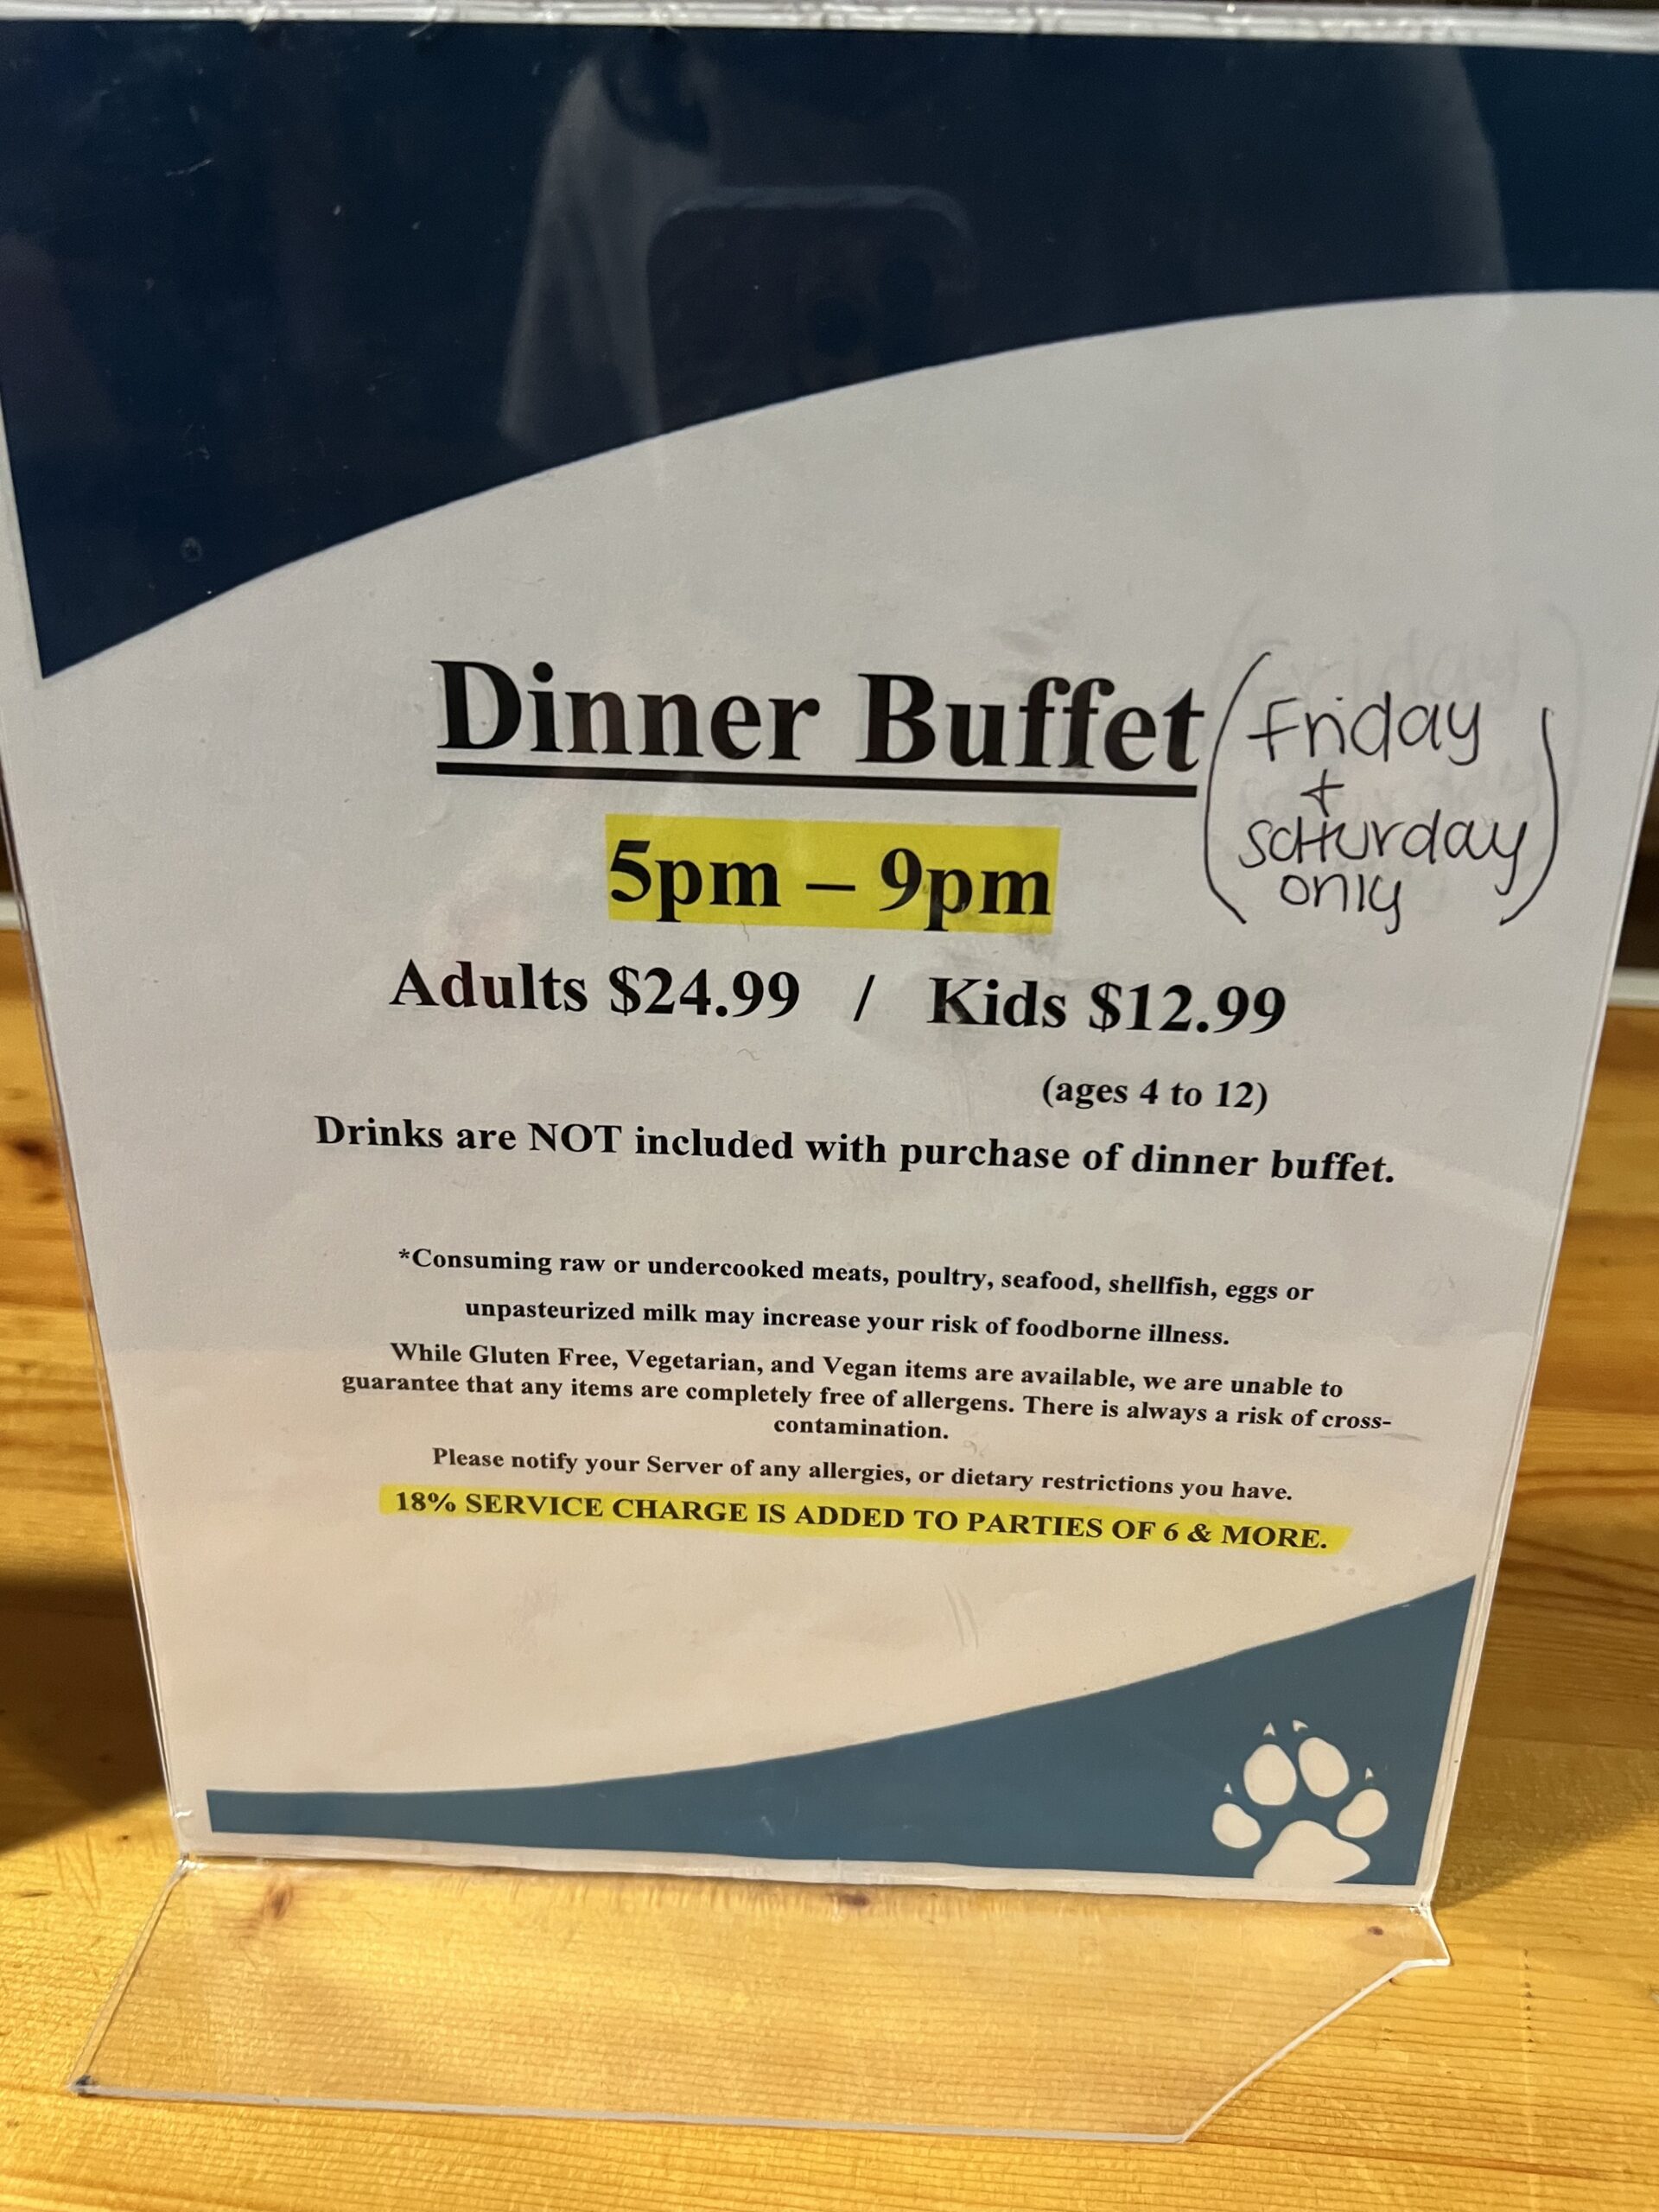 Dinner Buffet
(Friday
+
Saturday
only)
5pm – 9pm
Adults $24.99 / Kids $12.99
(ages 4 to 12)
Drinks are NOT included with purchase of dinner buffet.
*Consuming raw or undercooked meats, poultry, seafood, shellfish, eggs or
unpasteurized milk may increase your risk of foodborne illness.
While Gluten Free, Vegetarian, and Vegan items are available, we are unable to
guarantee that any items are completely free of allergens. There is always a risk of cross-
contamination.
Please notify your Server of any allergies, or dietary restrictions you have.
18% SERVICE CHARGE IS ADDED TO PARTIES OF 6 & MORE.